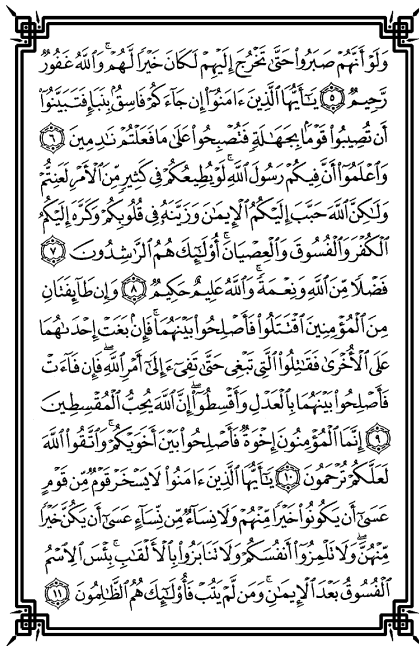 وَلَوۡ أَنَّهُمۡ صَبَرُواْ حَتَّىٰ تَخۡرُجَ إِلَيۡهِمۡ لَكَانَ خَيۡرٗا لَّهُمۡۚ وَٱللَّهُ غَفُورٞ
رَّحِيمٞ ٥ يَٰٓأَيُّهَا ٱلَّذِينَ ءَامَنُوٓاْ إِن جَآءَكُمۡ فَاسِقُۢ بِنَبَإٖ فَتَبَيَّنُوٓاْ
أَن تُصِيبُواْ قَوۡمَۢا بِجَهَٰلَةٖ فَتُصۡبِحُواْ عَلَىٰ مَا فَعَلۡتُمۡ نَٰدِمِينَ ٦
وَٱعۡلَمُوٓاْ أَنَّ فِيكُمۡ رَسُولَ ٱللَّهِۚ لَوۡ يُطِيعُكُمۡ فِي كَثِيرٖ مِّنَ ٱلۡأَمۡرِ لَعَنِتُّمۡ
وَلَٰكِنَّ ٱللَّهَ حَبَّبَ إِلَيۡكُمُ ٱلۡإِيمَٰنَ وَزَيَّنَهُۥ فِي قُلُوبِكُمۡ وَكَرَّهَ إِلَيۡكُمُ
ٱلۡكُفۡرَ وَٱلۡفُسُوقَ وَٱلۡعِصۡيَانَۚ أُوْلَٰٓئِكَ هُمُ ٱلرَّٰشِدُونَ ٧
فَضۡلٗا مِّنَ ٱللَّهِ وَنِعۡمَةٗۚ وَٱللَّهُ عَلِيمٌ حَكِيمٞ ٨ وَإِن طَآئِفَتَانِ
مِنَ ٱلۡمُؤۡمِنِينَ ٱقۡتَتَلُواْ فَأَصۡلِحُواْ بَيۡنَهُمَاۖ فَإِنۢ بَغَتۡ إِحۡدَىٰهُمَا
عَلَى ٱلۡأُخۡرَىٰ فَقَٰتِلُواْ ٱلَّتِي تَبۡغِي حَتَّىٰ تَفِيٓءَ إِلَىٰٓ أَمۡرِ ٱللَّهِۚ فَإِن فَآءَتۡ
فَأَصۡلِحُواْ بَيۡنَهُمَا بِٱلۡعَدۡلِ وَأَقۡسِطُوٓاْۖ إِنَّ ٱللَّهَ يُحِبُّ ٱلۡمُقۡسِطِينَ
٩ إِنَّمَا ٱلۡمُؤۡمِنُونَ إِخۡوَةٞ فَأَصۡلِحُواْ بَيۡنَ أَخَوَيۡكُمۡۚ وَٱتَّقُواْ ٱللَّهَ
لَعَلَّكُمۡ تُرۡحَمُونَ ١٠ يَٰٓأَيُّهَا ٱلَّذِينَ ءَامَنُواْ لَا يَسۡخَرۡ قَوۡمٞ مِّن قَوۡمٍ
عَسَىٰٓ أَن يَكُونُواْ خَيۡرٗا مِّنۡهُمۡ وَلَا نِسَآءٞ مِّن نِّسَآءٍ عَسَىٰٓ أَن يَكُنَّ خَيۡرٗا
مِّنۡهُنَّۖ وَلَا تَلۡمِزُوٓاْ أَنفُسَكُمۡ وَلَا تَنَابَزُواْ بِٱلۡأَلۡقَٰبِۖ بِئۡسَ ٱلِٱسۡمُ
ٱلۡفُسُوقُ بَعۡدَ ٱلۡإِيمَٰنِۚ وَمَن لَّمۡ يَتُبۡ فَأُوْلَٰٓئِكَ هُمُ ٱلظَّٰلِمُونَ ١١